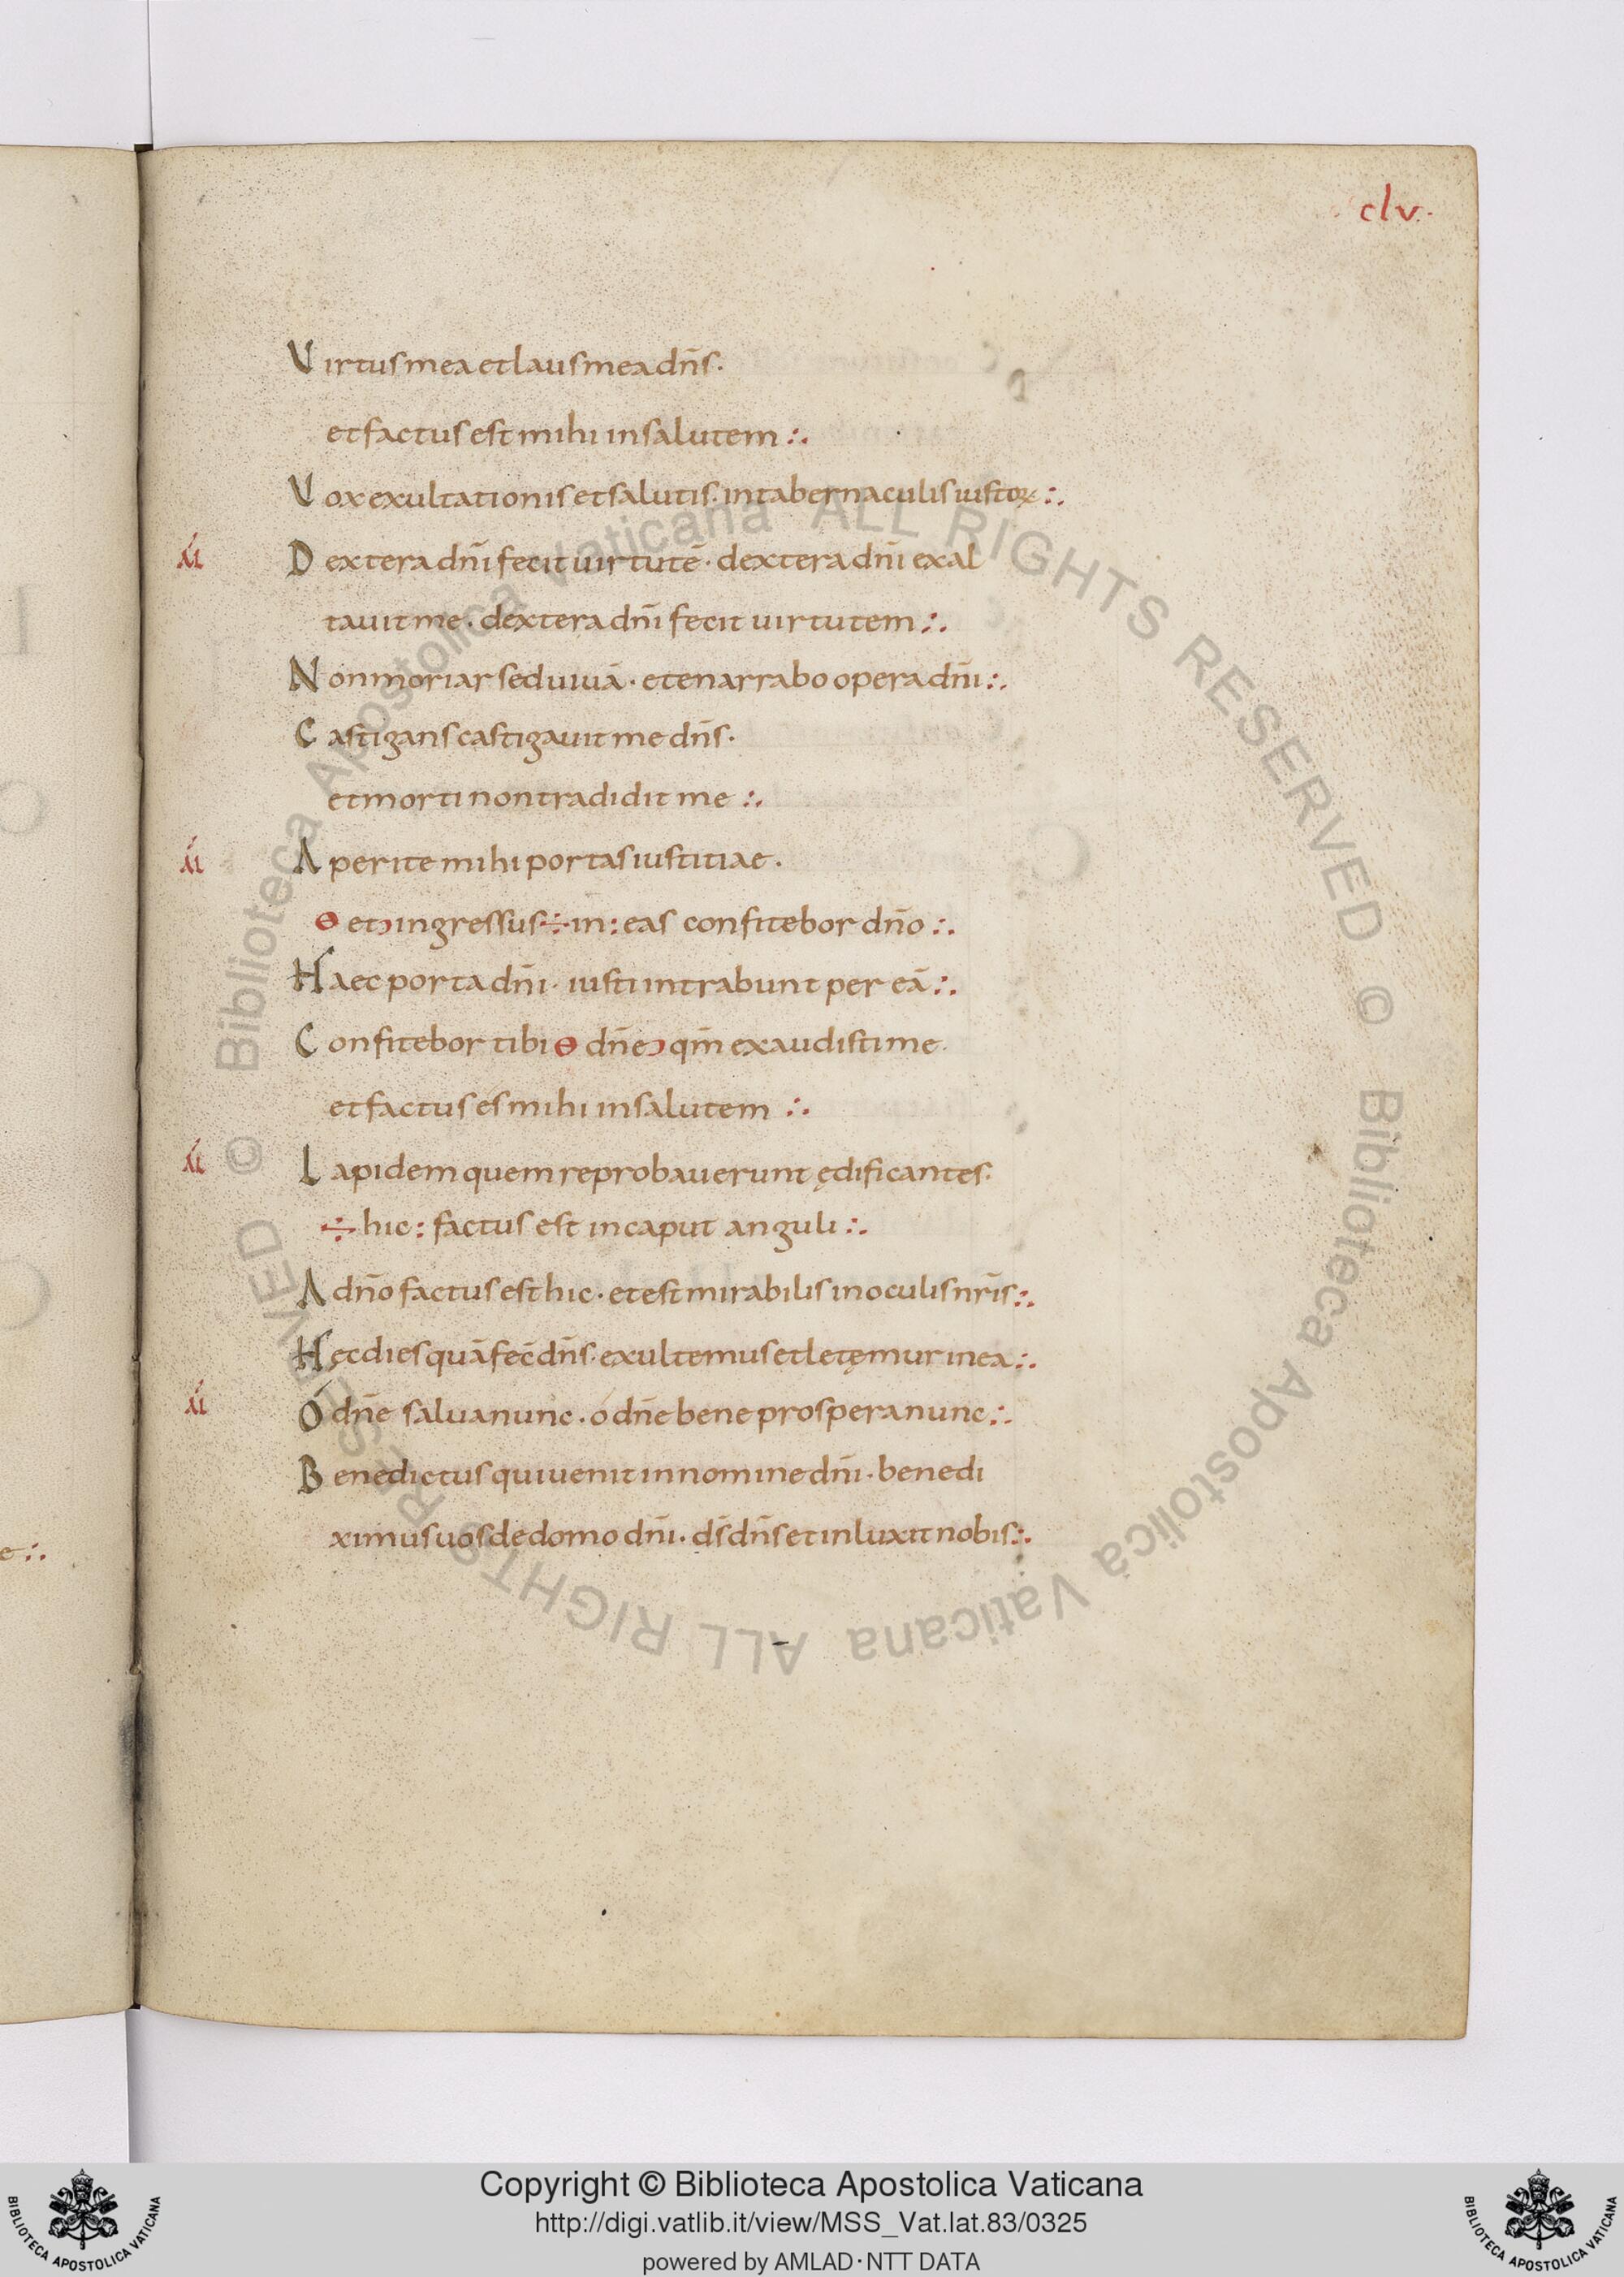 clv.
Virtus mea et laus mea dn̄s.
et factus est mihi in salutem :.
Vox exultationis et salutis. in tabernaculis iustoꝝ :.
Dextera dn̄i fecit uirtutē. dextera dn̄i exal
tauit me. dextera dn̄i fecit uirtutem :.
Non moriar sed uiuā. et enarrabo opera dn̄i :.
Castigans castigauit me dn̄s.
et morti non tradidit me :.
Aperite mihi portas iustitiae.
ɵ etɔ ingressus ÷ in : eas confitebor dn̄o :.
Haec porta dn̄i. iusti intrabunt per eā :.
Confitebor tibi ɵ dn̄eɔ qm̄ exaudisti me.
et factus es mihi in salutem :.
Lapidem quem reprobauerunt ędificantes.
÷ hic : factus est in caput anguli :.
A dn̄o factus est hic. et est mirabilis in oculis nr̄is :.
Hęc dies quā fec̄ dn̄s. exultemus et letęmur in ea :.
Ó dn̄e salua nunc. ó dn̄e bene prospera nunc :.
Benedictus qui uenit in nomine dn̄i. benedi
ximus uos de domo dn̄i. ds̄ dn̄s et inluxit nobis :.
e :.
© Biblioteca Apostolica Vaticana ALL RIGHTS RESERVED © Biblioteca Apostolica Vaticana ALL RIGHTS RESERVED
Copyright © Biblioteca Apostolica Vaticana
http://digi.vatlib.it/view/MSS_Vat.lat.83/0325
powered by AMLAD·NTT DATA
BIBLIOTECA APOSTOLICA VATICANA
BIBLIOTECA APOSTOLICA VATICANA